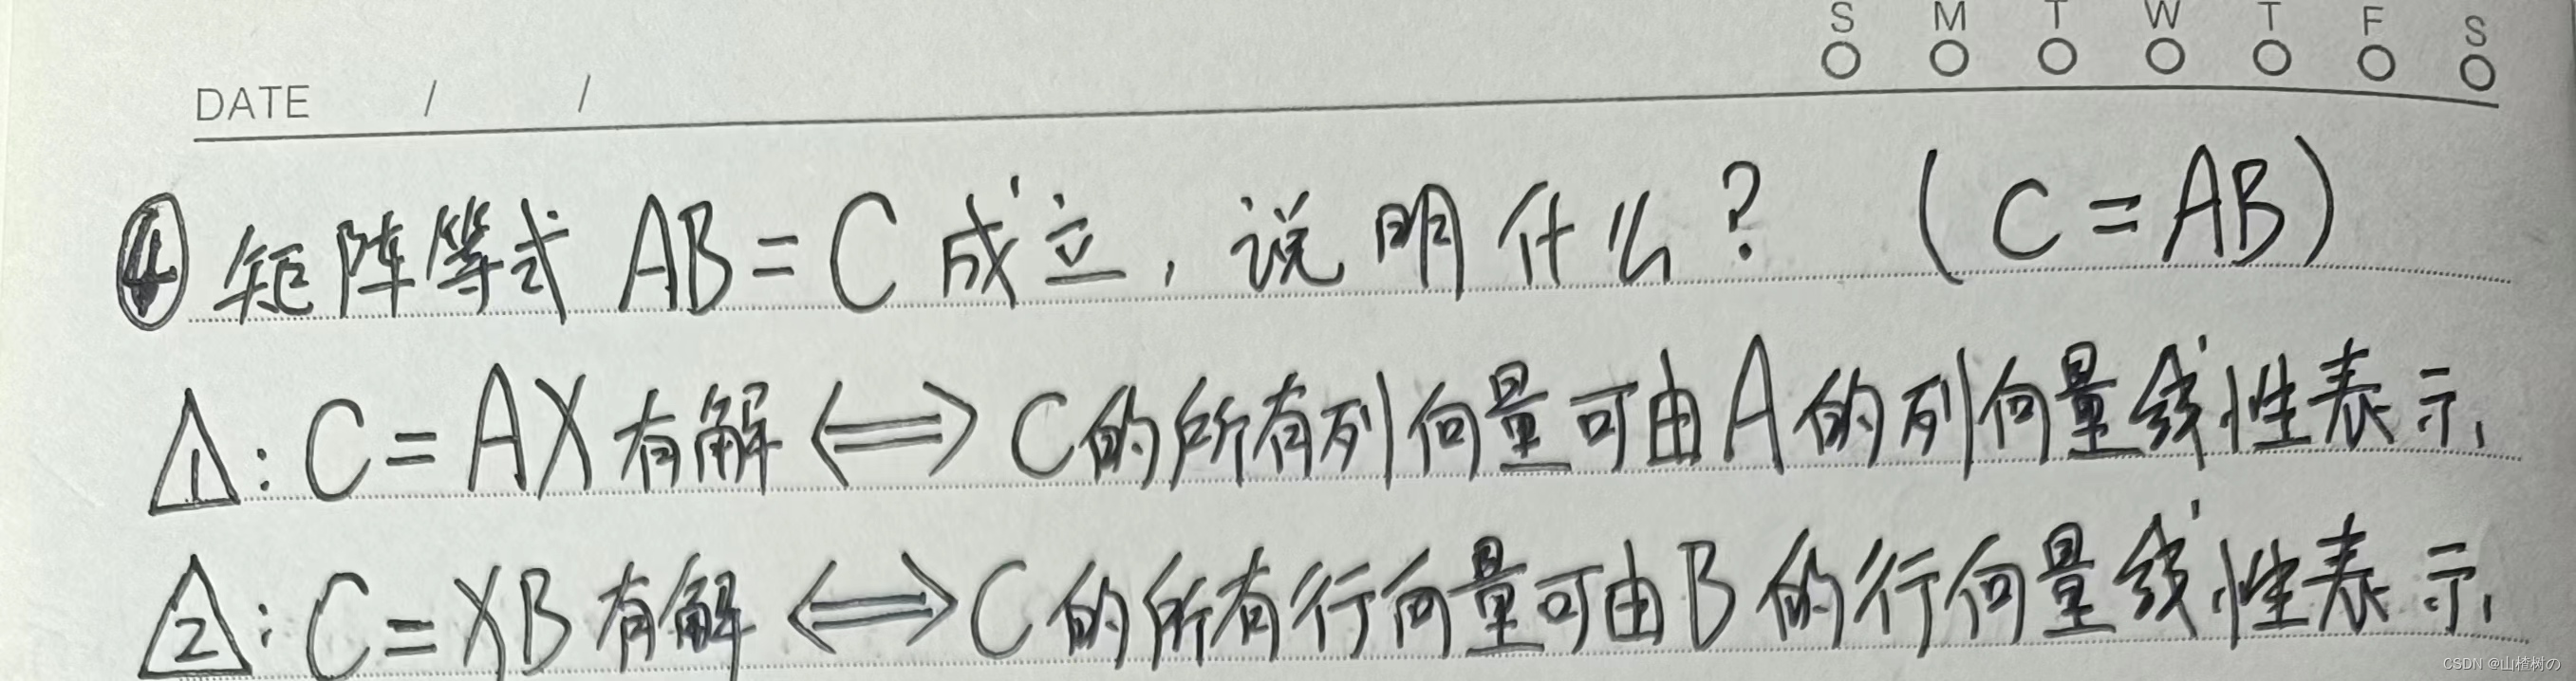 S M T W T F S
DATE / /
④ 矩阵等式 AB=C 成立，说明什么？ (C=AB)
△1: C=AX 有解 <=> C的所有列向量可由A的列向量线性表示.
△2: C=XB 有解 <=> C的所有行向量可由B的行向量线性表示.
CSDN @山楂树の